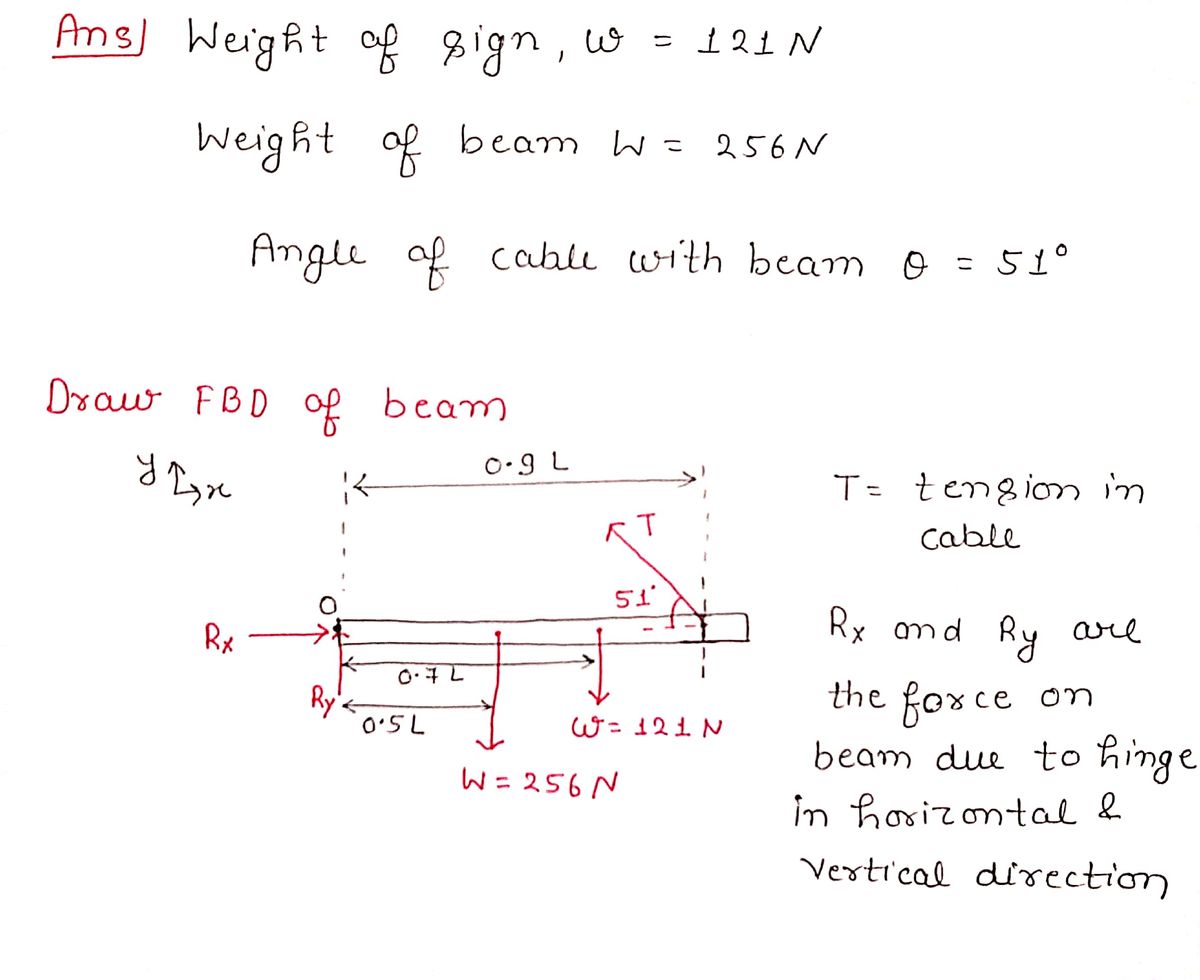 Ans) Weight of sign, w = 121 N
Weight of beam W = 256 N
Angle of cable with beam θ = 51°
Draw FBD of beam
y x
0.9 L
T = tension in
cable
T
51°
O
Rx
Rx and Ry are
0.7 L
Ry
the force on
0.5 L
w = 121 N
beam due to hinge
W = 256 N
in horizontal &
vertical direction